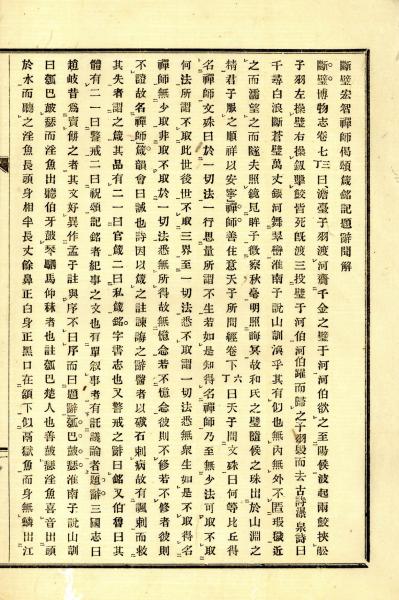 斷璧宏智禪師偈頌箴銘記題辭聞解
斷璧。博物志卷七丁三曰澹臺子羽渡河齎千金之璧于河河伯欲之至陽侯波起兩鮫挾船
子羽左操璧右操劍擊鮫皆死旣渡三投璧于河伯河伯躍而歸之子羽毀而去古詩瀑泉詩曰
千尋白浪斷蒼璧萬丈銀河舞翠巒淮南子說山訓漠乎其有似也無內無外不匿瑕穢近
之而濡望之而隧夫照鏡見眸子微察秋毫明照晦冥故和氏之璧隨侯之珠出於山淵之
精君子服之順祥以安寧禪師善住意天子所問經卷下六丁曰天子問文珠曰何等比丘得
名禪師文珠曰於一切法一行思量所謂不生若如是知得名禪師乃至無少法可取不取
何法所謂不取此世後世不取三界至一切法悉不取謂一切法悉無衆生如是不取得名
禪師無少取非取不取於一切法悉無所得故無憶念若不憶念彼則不修若不修者彼則
不證故名禪師箴韻會曰誡也詩因以箴之註諫誨之辭醫者以礛石刺病故有諷刺而救
其失者謂之箴其品有二一曰官箴二曰私箴銘字書志也又警戒之辭曰銘又伯魯曰其
體有二一曰警戒二曰祝頌記銘者紀事之文也有單叙事者有託議論者題辭三國志曰
趙岐昔為賣餅之者其文好異作孟子註與序不曰序而曰題辭瓠巴鼓瑟淮南子說山訓
曰瓠巴鼓瑟而淫魚出聽伯牙鼓琴駟馬仰秣者也註瓠巴楚人也善鼓瑟淫魚喜音出頭
於水而聽之淫魚長頭身相半長丈餘鼻正白身正黑口在頷下似鬲獄魚而身無鱗出江